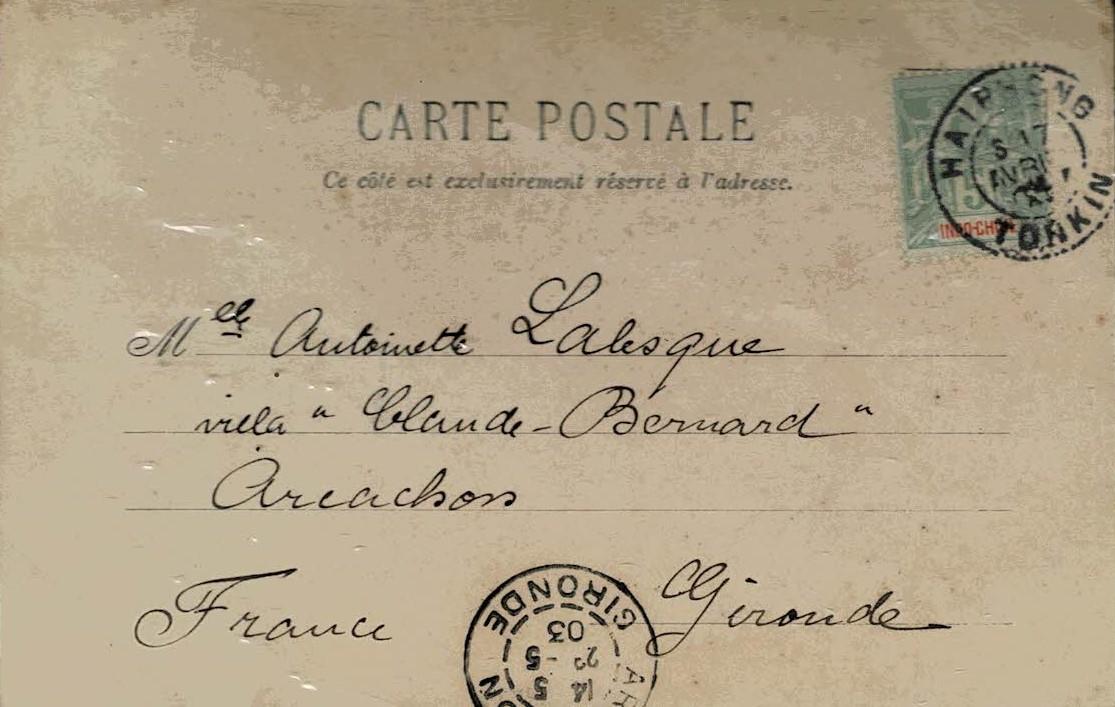 CARTE POSTALE
Ce côté est exclusivement réservé à l'adresse.
HAIPHONG
17
AVRIL
TONKIN
5
INDO-CHINE
Melle Antoinette Lalesque
villa " Claude-Bernard "
Arcachon
France Gironde
GIRONDE
03